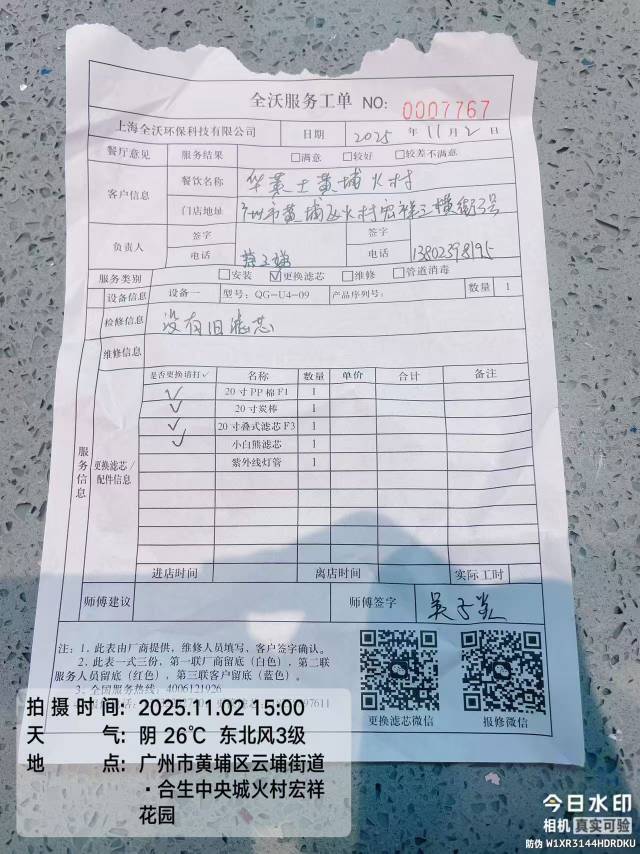 全沃服务工单 NO: 0007767
上海全沃环保科技有限公司 日期 2025 年 11 月 2 日
餐厅意见 服务结果 □满意 □较好 □较差不满意
客户信息 餐饮名称 华莱士黄埔火村
门店地址 广州市黄埔区火村宏祥三横街3号
负责人 签字 签字
电话 电话 13802398195
服务类别 □安装 ☑更换滤芯 □维修 □管道消毒
设备信息 设备一 型号: QG-U4-09 产品序列号: 数量 1
检修信息 没有旧滤芯
维修信息
服务信息 更换滤芯/配件信息
是否更换请打√ 名称 数量 单价 合计 备注
✓ 20寸PP棉F1 1
✓ 20寸炭棒 1
✓ 20寸叠式滤芯F3 1
✓ 小白熊滤芯 1
紫外线灯管 1
进店时间 离店时间 实际工时
师傅建议 师傅签字
注: 1. 此表由厂商提供，维修人员填写，客户签字确认。
2. 此表一式三份，第一联厂商留底（白色），第二联
服务人员留底（红色），第三联客户留底（蓝色）。
3. 全国服务热线: 4006121926
97611
更换滤芯微信 报修微信
拍摄时间: 2025.11.02 15:00
天 气: 阴 26℃ 东北风3级
地 点: 广州市黄埔区云埔街道
·合生中央城火村宏祥
花园
今日水印
相机 真实可验
防伪 W1XR3144HDRDKU